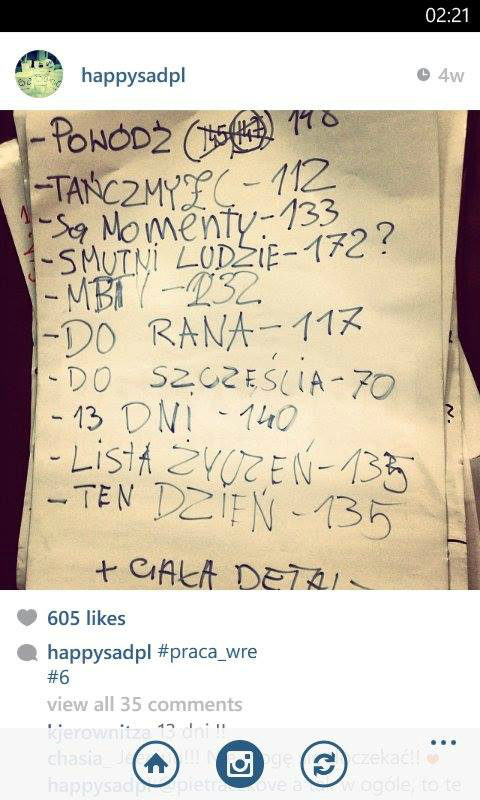 02:21
happysadpl
4w
- POWÓDŹ (145 147) 148
- TAŃCZMYŻC - 112
- Są Momenty - 133
- SMUTNI LUDZIE - 172?
- DO RANA - 117
- DO SZCZĘŚCIA - 70
- 13 DNI - 140
- LISTA ŻYCZEŃ - 135
- TEN DZIEŃ - 135
+ CAŁA
605 likes
happysadpl #praca_wre
#6
view all 35 comments
kjerownitza 13 dni !!
chasia_
happysadpl @pietraczkove a tak w ogóle, to te